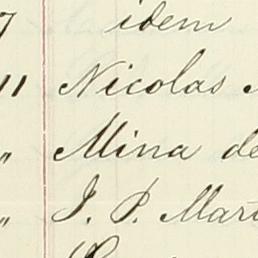 7 idem
11 Nicolas
" Mina de
" J. P. Mart